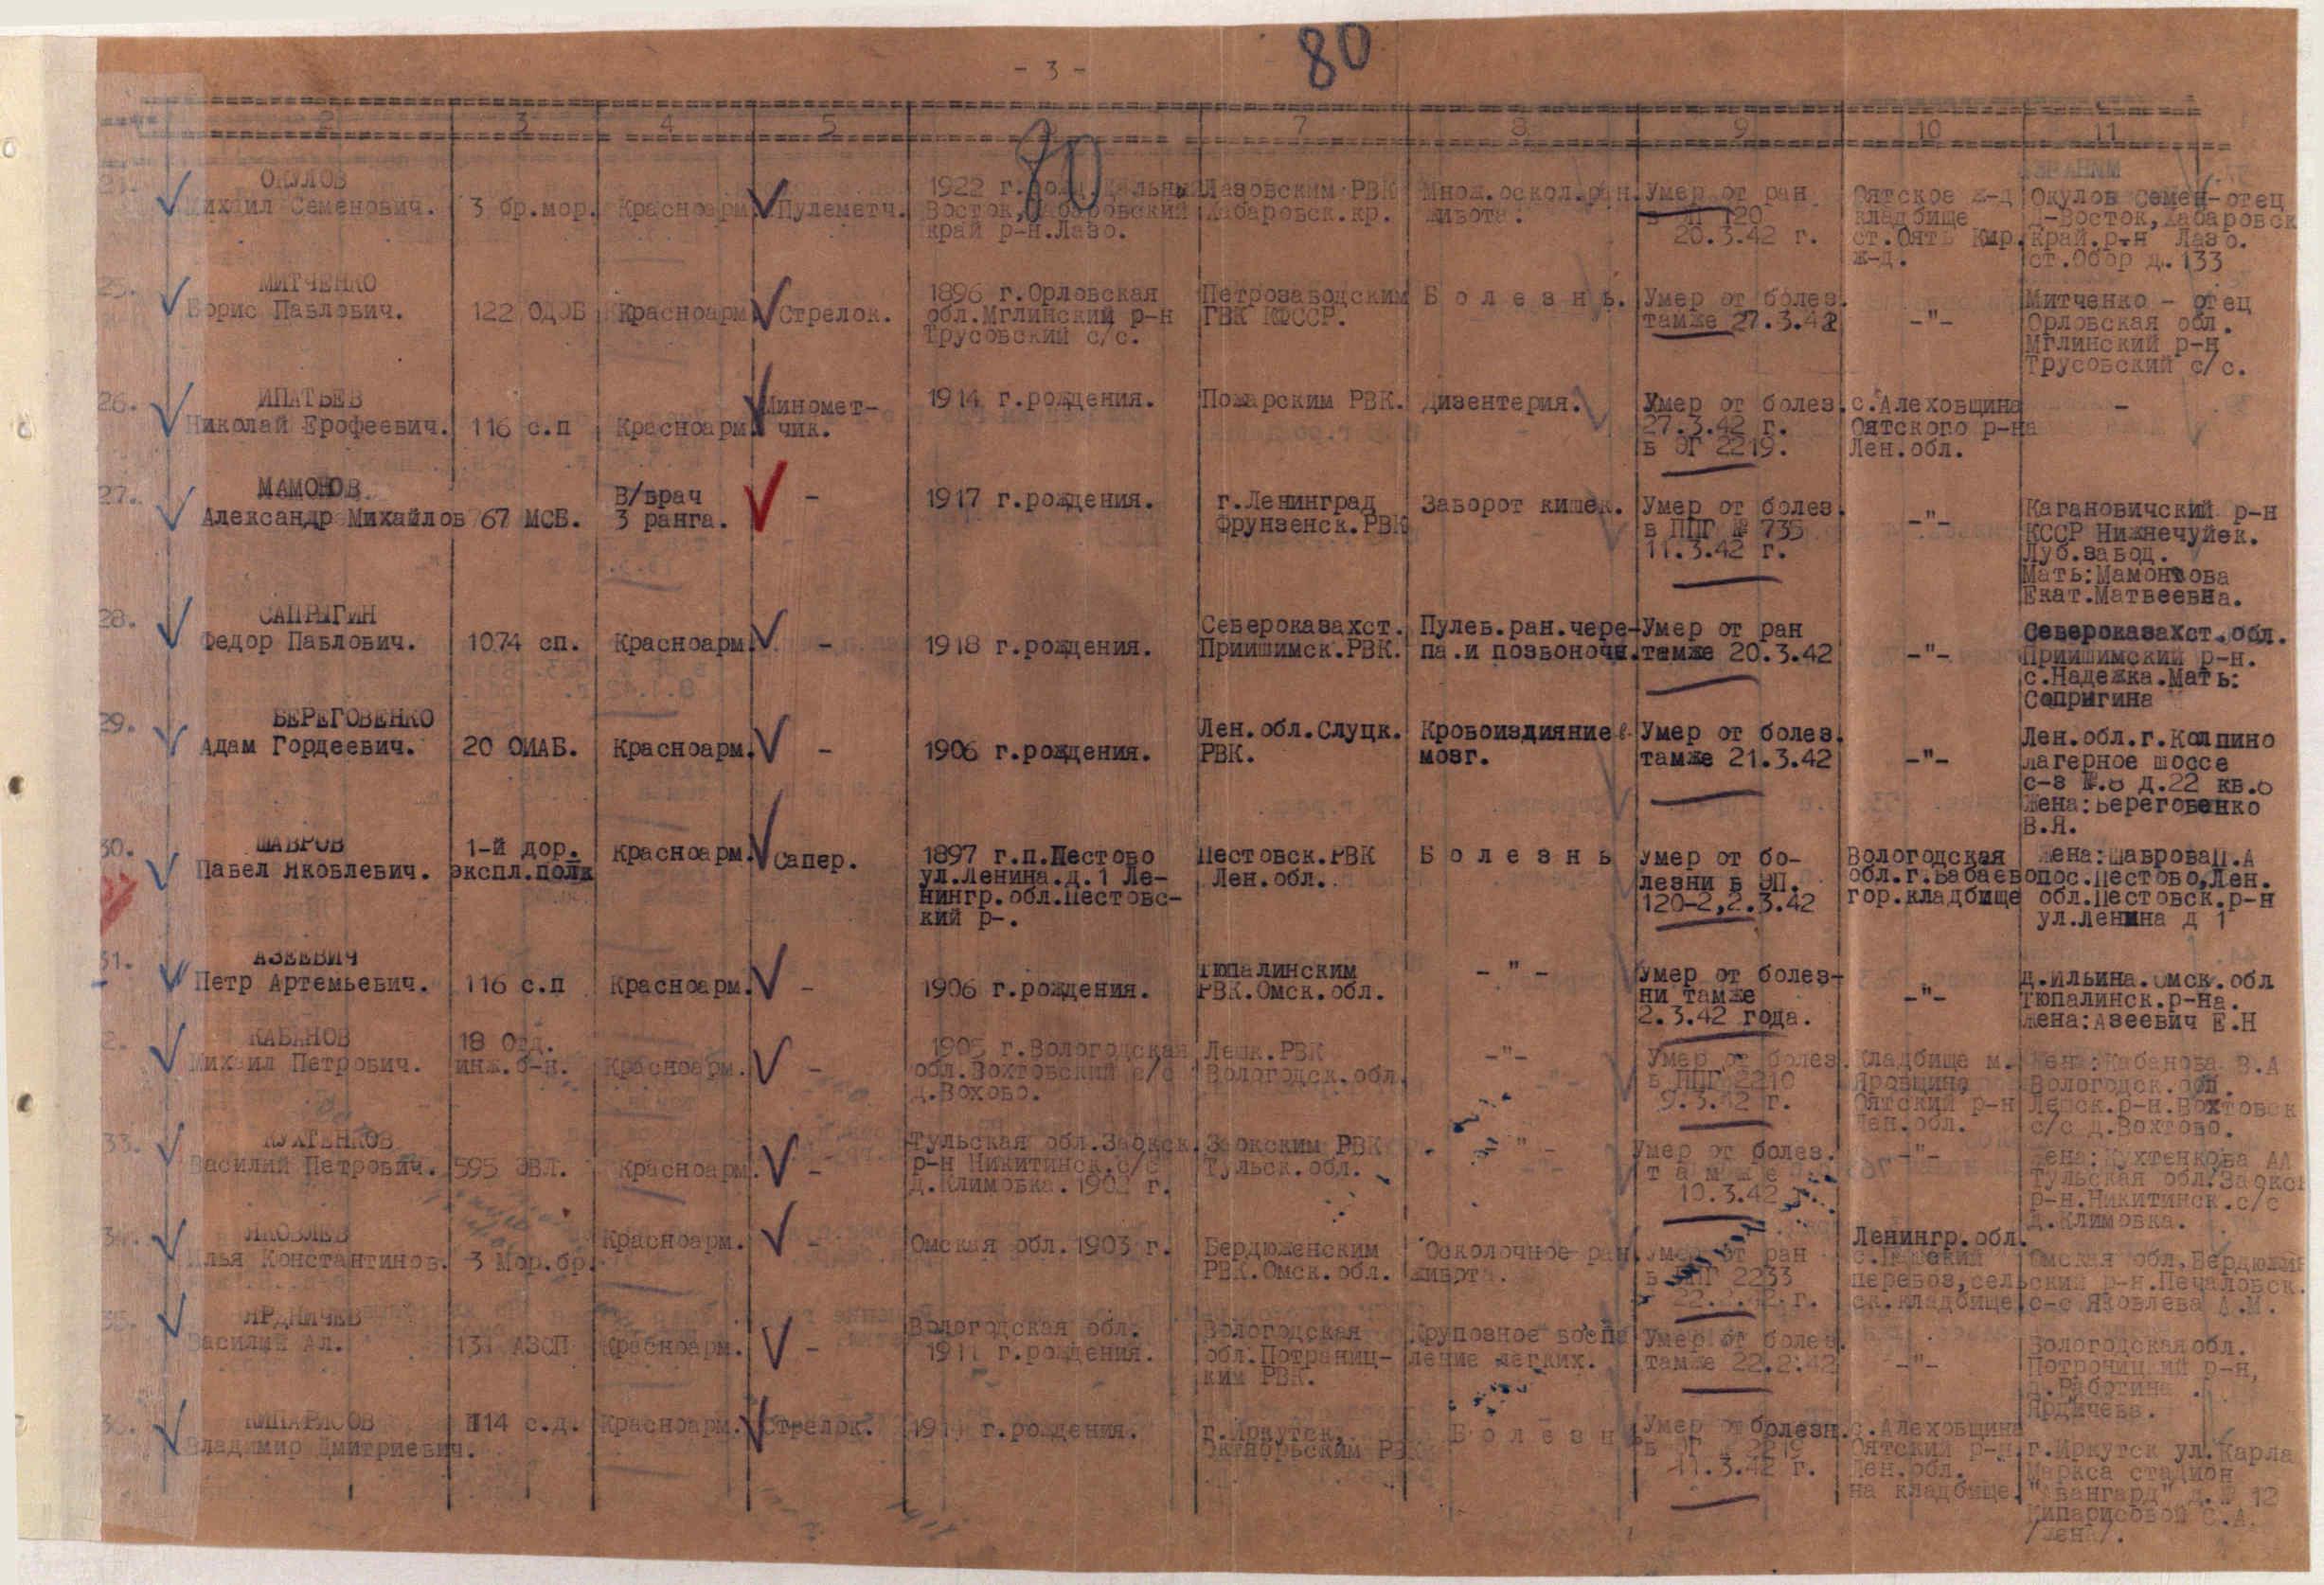 - 3 -
80
2 3 4 5 7 8 9 10 11
80
ОКУЛОВ
Михаил Семенович.
3 бр.мор.
Красноарм
Пулеметч.
1922 г.рожд. Дальный
Восток, Хабаровский
край р-н.Лазо.
Лазовским РВК
Хабаровск.кр.
Множ.оскол.ран.
живота.
Умер от ран
в ЭГ 120
20.3.42 г.
Оятское ж-д
кладбище
ст.Оять Кир.
ж-д.
Окулов Семен-отец
Д-Восток, Хабаровск
край.р-н Лазо.
ст.Обор д. 133
25.
МИТЧЕНКО
Борис Павлович.
122 ОДОБ
Красноарм
Стрелок.
1896 г.Орловская
обл.Мглинский р-н
Трусовский с/с.
Петрозаводским
ГВК КФССР.
Б о л е з н ь.
Умер от болез.
тамже 27.3.42
-"-
Митченко - отец
Орловская обл.
Мглинский р-н
Трусовский с/с.
26.
ИПАТЬЕВ
Николай Ерофеевич.
116 с.п
Красноарм.
Миномет-
чик.
1914 г.рождения.
Пожарским РВК.
Дизентерия.
Умер от болез.
27.3.42 г.
в ЭГ 2219.
с.Алеховщина
Оятского р-на
Лен.обл.
-
27.
МАМОНОВ
Александр Михайлов
67 МСБ.
В/врач
3 ранга.
-
1917 г.рождения.
г.Ленинград
Фрунзенск.РВК
Заворот кишек.
Умер от болез
в ППГ № 735
11.3.42 г.
-"-
Кагановичский р-н
КССР Нижнечуйек.
Луб.завод.
Мать:Мамонова
Екат.Матвеевна.
28.
САПРЫГИН
Федор Павлович.
1074 сп.
Красноарм.
-
1918 г.рождения.
Североказахст.
Приишимск.РВК.
Пулев.ран.чере-
па.и позвоночн.
Умер от ран
тамже 20.3.42
-"-
Североказахст.обл.
Приишимский р-н.
с.Надежка.Мать:
Сопригина
29.
БЕРЕГОВЕНКО
Адам Гордеевич.
20 ОИАБ.
Красноарм.
-
1906 г.рождения.
Лен.обл.Слуцк.
РВК.
Кровоиздияние в
мозг.
Умер от болез.
тамже 21.3.42
-"-
Лен.обл.г.Колпино
лагерное шоссе
с-з №.8 д.22 кв.6
Жена:Береговенко
В.Я.
30.
ШАВРОВ
Павел Яковлевич.
1-й дор.
экспл.полк
Красноарм.
Сапер.
1897 г.п.Пестово
ул.Ленина.д.1 Ле-
нингр.обл.Пестовс-
кий р-.
Пестовск.РВК
Лен.обл.
Б о л е з н ь
Умер от бо-
лезни в ЭП.
120-2,2.3.42
Вологодская
обл.г.Бабаево
гор.кладбище
Жена:ШавроваП.А
пос.Пестово,Лен.
обл.Пестовск.р-н
ул.Ленина д 1
31.
АЗЕЕВИЧ
Петр Артемьевич.
116 с.п
Красноарм.
-
1906 г.рождения.
Тюпалинским
РВК.Омск.обл.
- " -
Умер от болез-
ни тамже
2.3.42 года.
-"-
д.Ильина.Омск.обл
Тюпалинск.р-на.
Жена:Азеевич Е.Н
КАБАНОВ
Михаил Петрович.
18 Отд.
инж.б-н.
Красноарм.
-
1905 г.Вологодская
обл.Вохтовский с/с
д.Вохово.
Лешк.РВК
Вологодск.обл.
-"-
Умер от болез.
в ППГ 2210
9.3.42 г.
Кладбище м.
Яровщина
Оятский р-н
Лен.обл.
Жена:Кабанова В.А
Вологодск.обл.
Лешск.р-н.Вохтовск
с/с д.Вохтово.
33.
КУХТЕНКОВ
Василий Петрович.
595 ЭВЛ.
Красноарм.
-
Тульская обл.Заокск.
р-н Никитинск.с/с
д.Климовка.1902 г.
Заокским РВК
Тульск.обл.
-"-
Умер от болез.
т а м ж е
10.3.42 г.
-"-
Жена:Кухтенкова АА
Тульская обл.Заокск
р-н.Никитинск.с/с
д.Климовка.
34.
ЯКОВЛЕВ
Илья Константинов.
3 Мор.бр.
Красноарм.
-
Омская обл.1903 г.
Бердюженским
РВК.Омск.обл.
Осколочное ран.
живота.
Умер от ран
в ППГ 2233
22.2.42.г.
Ленингр.обл.
перевоз,сель
ск.кладбище
Омская обл.Бердюжин
ский р-н.Печаловск.
с-с Яковлева А.М.
35.
ЯРДНИЧЕВ
Василий Ал.
131 АЗСП
Красноарм.
-
Вологодская обл.
1911 г.рождения.
Вологодская
обл.Потраниц-
ким РВК.
Крупозное воспа
ление легких.
Умер от болез.
тамже 22.2.42
-"-
Вологодская обл.
Потрониц ий р-н,
д.Работина.
Ярдичева.
36.
КИПАРИСОВ
Владимир Дмитриевич.
114 с.д.
Красноарм.
Стрелок.
г.рождения.
г.Иркутск,
Октябрьским РВК
Б о л е з н ь
Умер от болезн.
в ЭГ 2219
11.3.42 г.
с.Алеховщина
Оятский р-н
Лен.обл.
на кладбище.
г.Иркутск ул.Карла
Маркса стадион
"Авангард" д.№ 12
Кипарисовой С.А.
/Жена/.